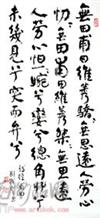 無田甫田維莠驕々無思遠人勞心
忉々無田甫田維莠桀々無思遠
人勞心怛々婉兮孌兮總角丱兮
未幾見兮突而弁兮